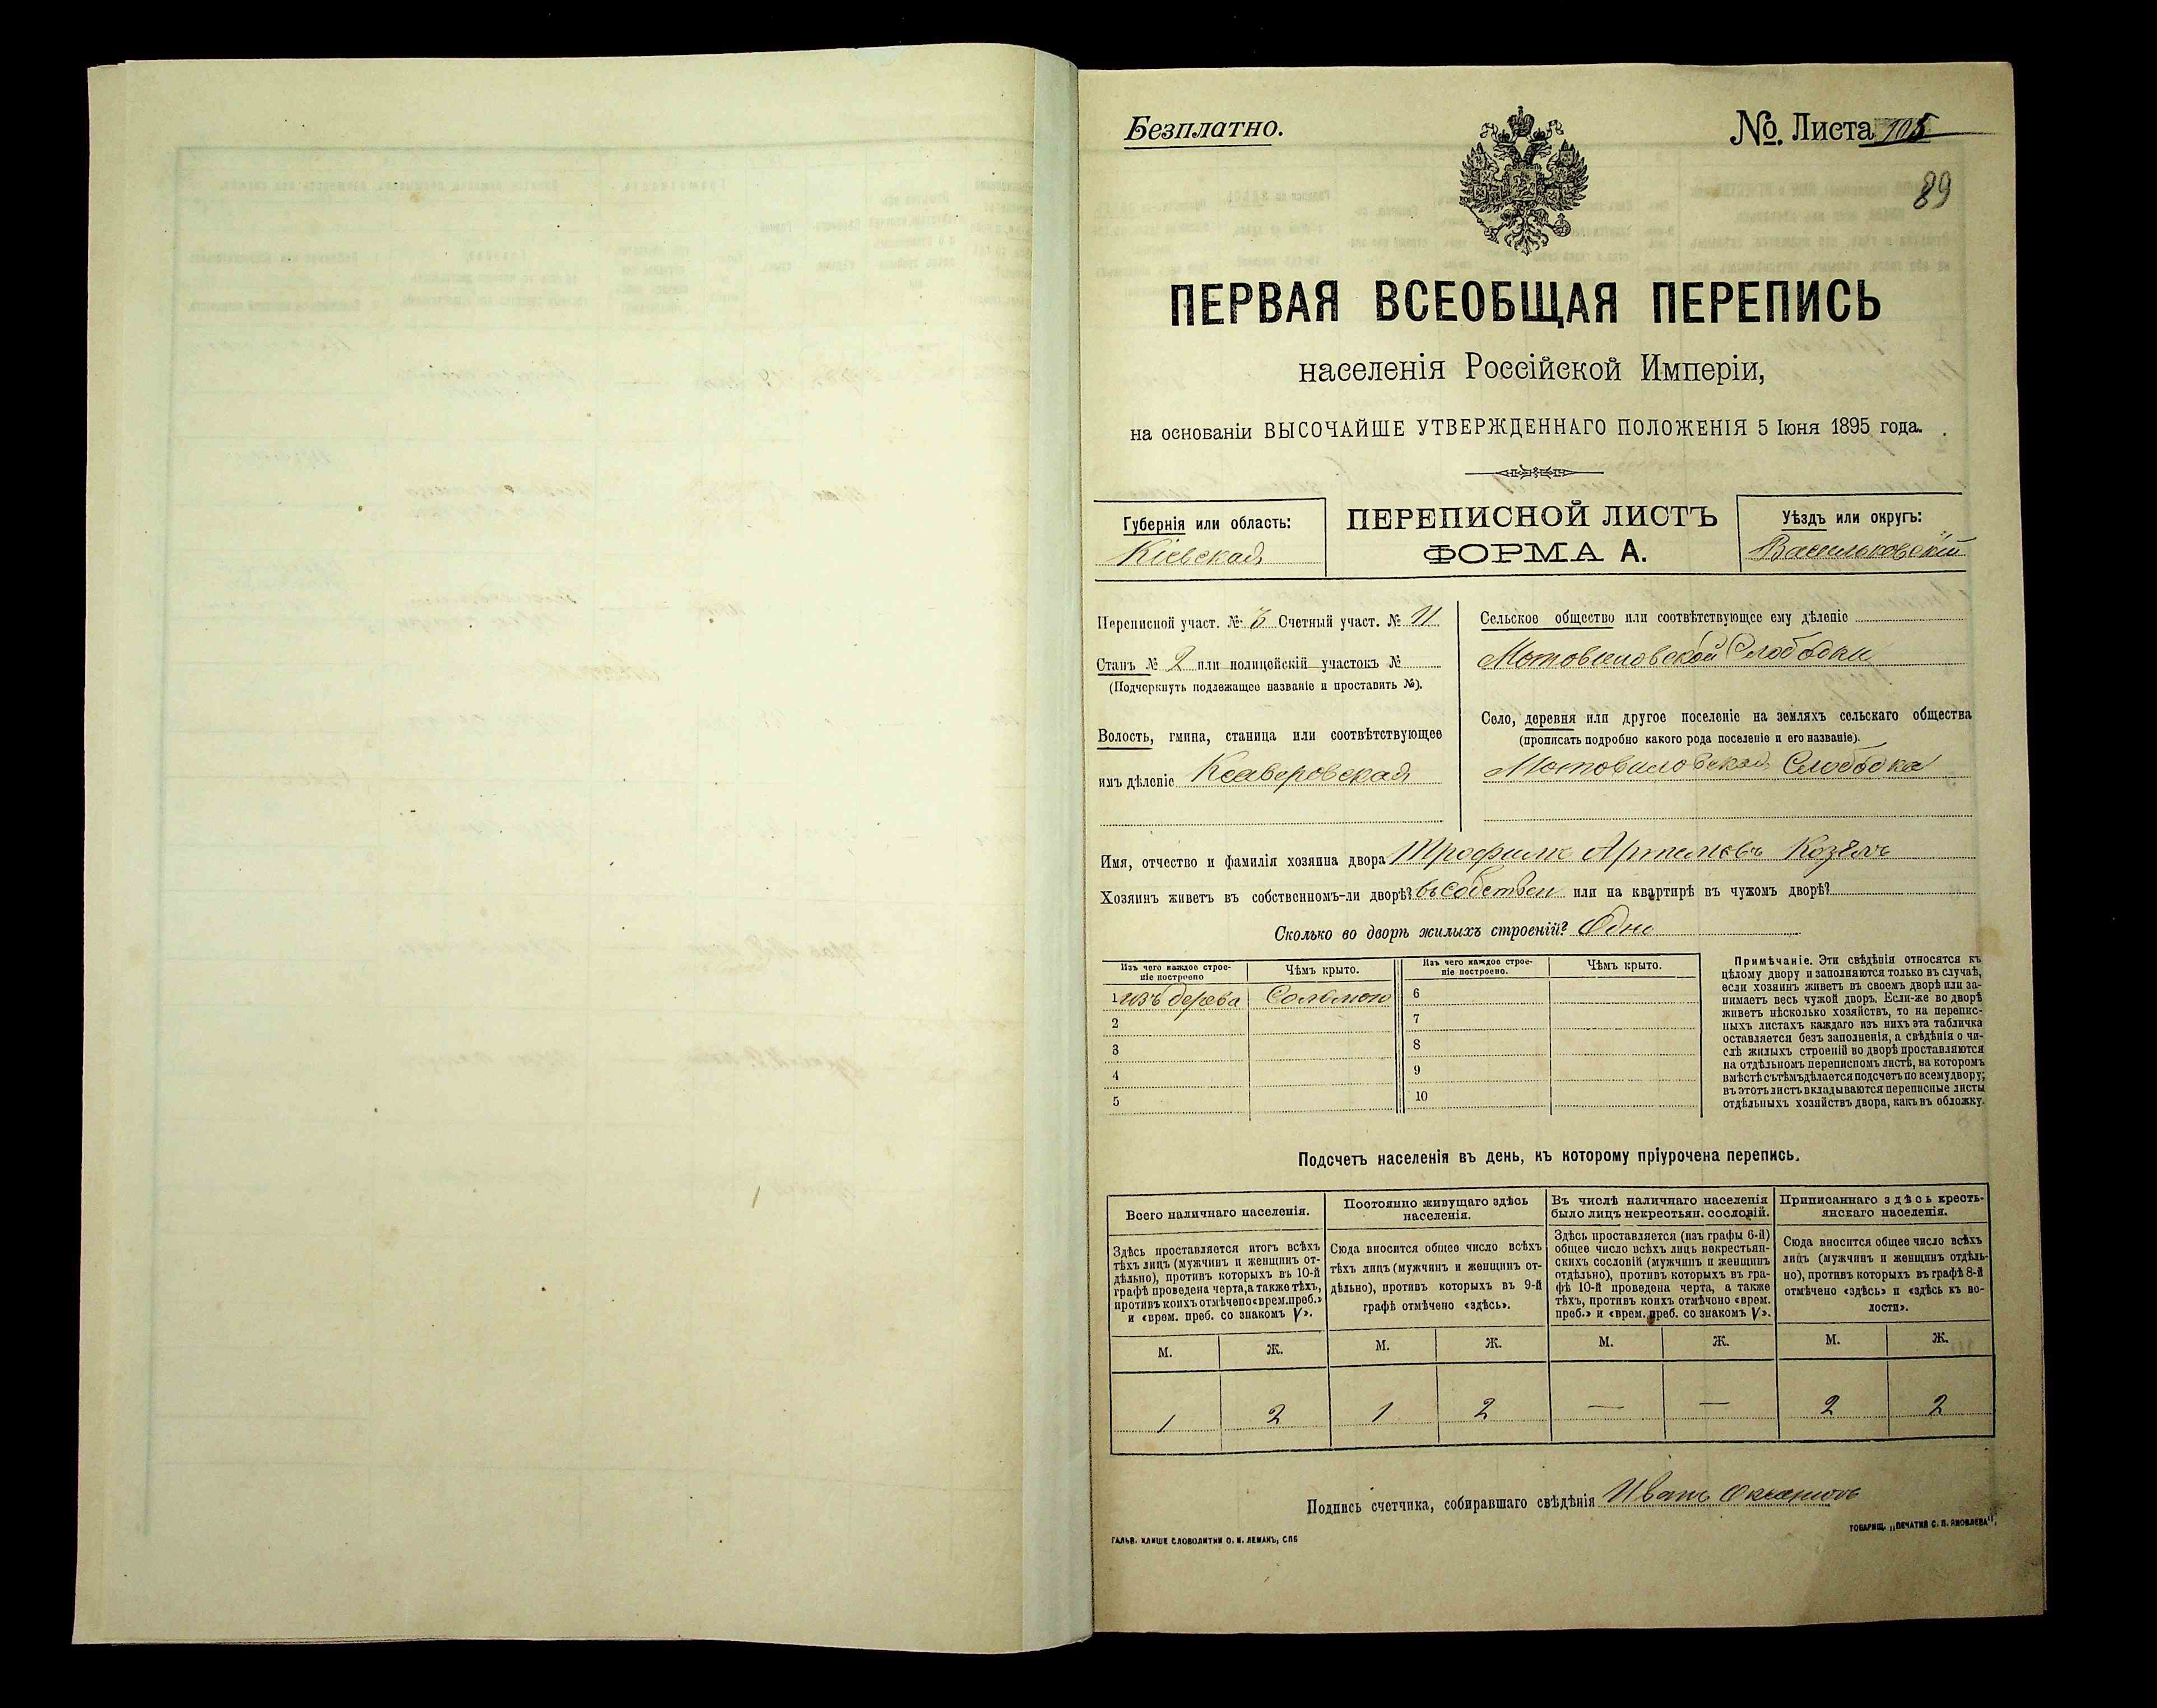 Безплатно.
No. Листа 105
89
ПЕРВАЯ ВСЕОБЩАЯ ПЕРЕПИСЬ
населенія Россійской Имперіи,
на основаніи ВЫСОЧАЙШЕ УТВЕРЖДЕННАГО ПОЛОЖЕНІЯ 5 Іюня 1895 года.
Губернія или область:
Кіевская
ПЕРЕПИСНОЙ ЛИСТЪ
ФОРМА А.
Уѣздъ или округъ:
Васильковскій
Переписной участ. № 3 Счетный участ. № 11
Станъ № 2 или полицейскій участокъ №
(Подчеркнуть подлежащее названіе и проставить №).
Волость, гмина, станица или соотвѣтствующее
имъ дѣленіе Ксаверовская
Сельское общество или соотвѣтствующее ему дѣленіе
Мотовиловской Слободки
Село, деревня или другое поселеніе на земляхъ сельскаго общества
(прописать подробно какого рода поселеніе и его названіе).
Мотовиловская Слободка
Имя, отчество и фамилія хозяина двора Трофимъ Артемовъ Козелъ
Хозяинъ живетъ въ собственномъ-ли дворѣ? въ собствен или на квартирѣ въ чужомъ дворѣ?
Сколько во дворѣ жилыхъ строеній? Одно
Изъ чего каждое строе-
ніе построено
Чѣмъ крыто.
Изъ чего каждое строе-
ніе построено.
Чѣмъ крыто.
1 изъ дерева Соломою 6
2 7
3 8
4 9
5 10
Примѣчаніе. Эти свѣдѣнія относятся къ
цѣлому двору и заполняются только въ случаѣ,
если хозяинъ живетъ въ своемъ дворѣ или за-
нимаетъ весь чужой дворъ. Если-же во дворѣ
живетъ нѣсколько хозяйствъ, то на перепис-
ныхъ листахъ каждаго изъ нихъ эта табличка
оставляется безъ заполненія, а свѣдѣнія о чи-
слѣ жилыхъ строеній во дворѣ проставляются
на отдѣльномъ переписномъ листѣ, на которомъ
вмѣстѣ съ тѣмъ дѣлается подсчетъ по всему двору;
въ этотъ листъ вкладываются переписные листы
отдѣльныхъ хозяйствъ двора, какъ въ обложку.
Подсчетъ населенія въ день, къ которому пріурочена перепись.
Всего наличнаго населенія.
Здѣсь проставляется итогъ всѣхъ
тѣхъ лицъ (мужчинъ и женщинъ от-
дѣльно), противъ которыхъ въ 10-й
графѣ проведена черта, а также тѣхъ,
противъ коихъ отмѣчено «врем. преб.»
и «врем. преб. со знакомъ V».
Постоянно живущаго здѣсь
населенія.
Сюда вносится общее число всѣхъ
тѣхъ лицъ (мужчинъ и женщинъ от-
дѣльно), противъ которыхъ въ 9-й
графѣ отмѣчено «здѣсь».
Въ числѣ наличнаго населенія
было лицъ некрестьян. сословій.
Здѣсь проставляется (изъ графы 6-й)
общее число всѣхъ лицъ некрестьян-
скихъ сословій (мужчинъ и женщинъ
отдѣльно), противъ которыхъ въ гра-
фѣ 10-й проведена черта, а также
тѣхъ, противъ коихъ отмѣчено «врем.
преб.» и «врем. преб. со знакомъ V».
Приписаннаго здѣсь кресть-
янскаго населенія.
Сюда вносится общее число всѣхъ
лицъ (мужчинъ и женщинъ отдѣль-
но), противъ которыхъ въ графѣ 8-й
отмѣчено «здѣсь» и «здѣсь къ во-
лости».
М. Ж. М. Ж. М. Ж. М. Ж.
1 2 1 2 — — 2 2
Подпись счетчика, собиравшаго свѣдѣнія Иванъ
ГАЛЬВ. КЛИШЕ СЛОВОЛИТНИ О. И. ЛЕМАНЪ, СПБ
ТОВАРИЩ. „ПЕЧАТНЯ С. П. ЯКОВЛЕВА".